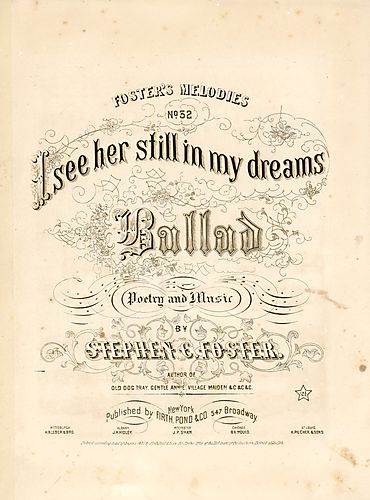 FOSTER'S MELODIES
No 32
I see her still in my dreams
Ballad
Poetry and Music
BY
STEPHEN C. FOSTER.
AUTHOR OF
OLD DOG TRAY, GENTLE ANNIE, VILLAGE MAIDEN &C &C &C.
New York
Published by FIRTH, POND & CO 547 Broadway
PITTSBURGH H. KLEBER & BRO.
ALBANY J.H. HIDLEY
ROCHESTER J.P. SHAW
CHICAGO
ST LOUIS H. PILCHER & SONS